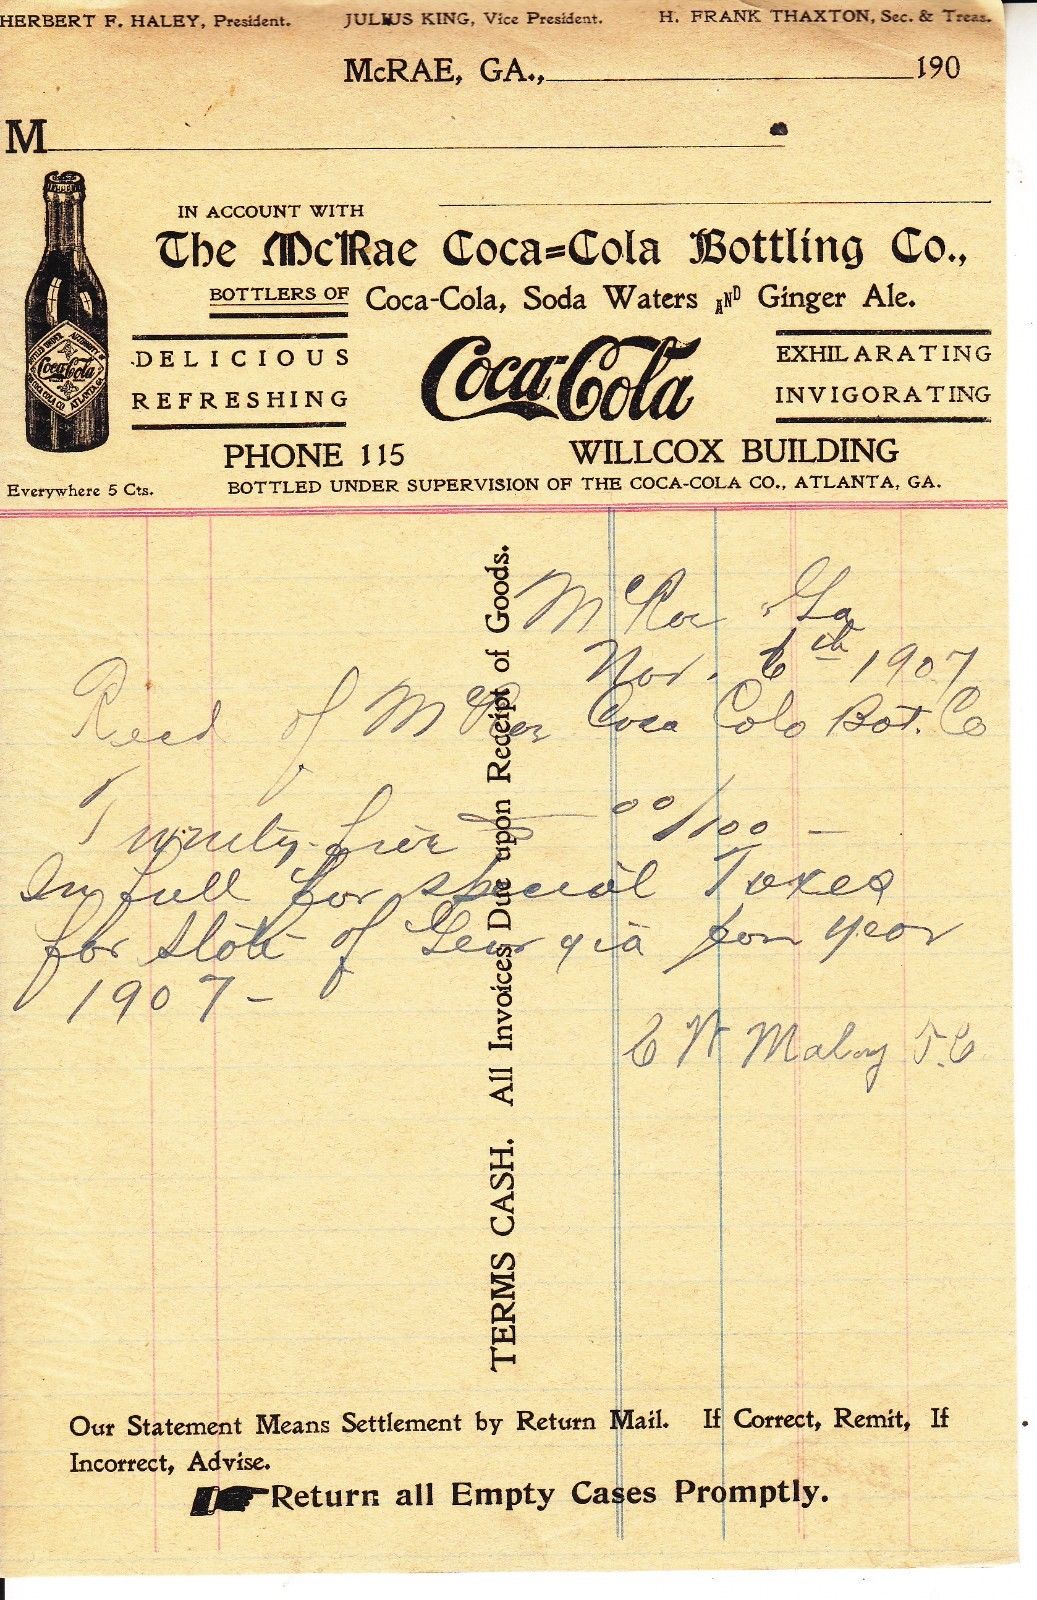 HERBERT F. HALEY, President. JULIUS KING, Vice President. H. FRANK THAXTON, Sec. & Treas.
McRAE, GA., 190
M
IN ACCOUNT WITH
The McRae Coca=Cola Bottling Co.,
BOTTLERS OF Coca-Cola, Soda Waters AND Ginger Ale.
DELICIOUS
REFRESHING
Coca-Cola
EXHILARATING
INVIGORATING
Coca-Cola
PHONE 115 WILLCOX BUILDING
Everywhere 5 Cts. BOTTLED UNDER SUPERVISION OF THE COCA-COLA CO., ATLANTA, GA.
McRae Ga
Nov. 6th 1907
Recd of McRae Coca Cola Bot. Co
Twenty-five 00/100 -
In full for special Taxes
for State of Georgia for year
1907-
C W Maloy T.C
TERMS CASH. All Invoices Due upon Receipt of Goods.
Our Statement Means Settlement by Return Mail. If Correct, Remit, If
Incorrect, Advise.
Return all Empty Cases Promptly.